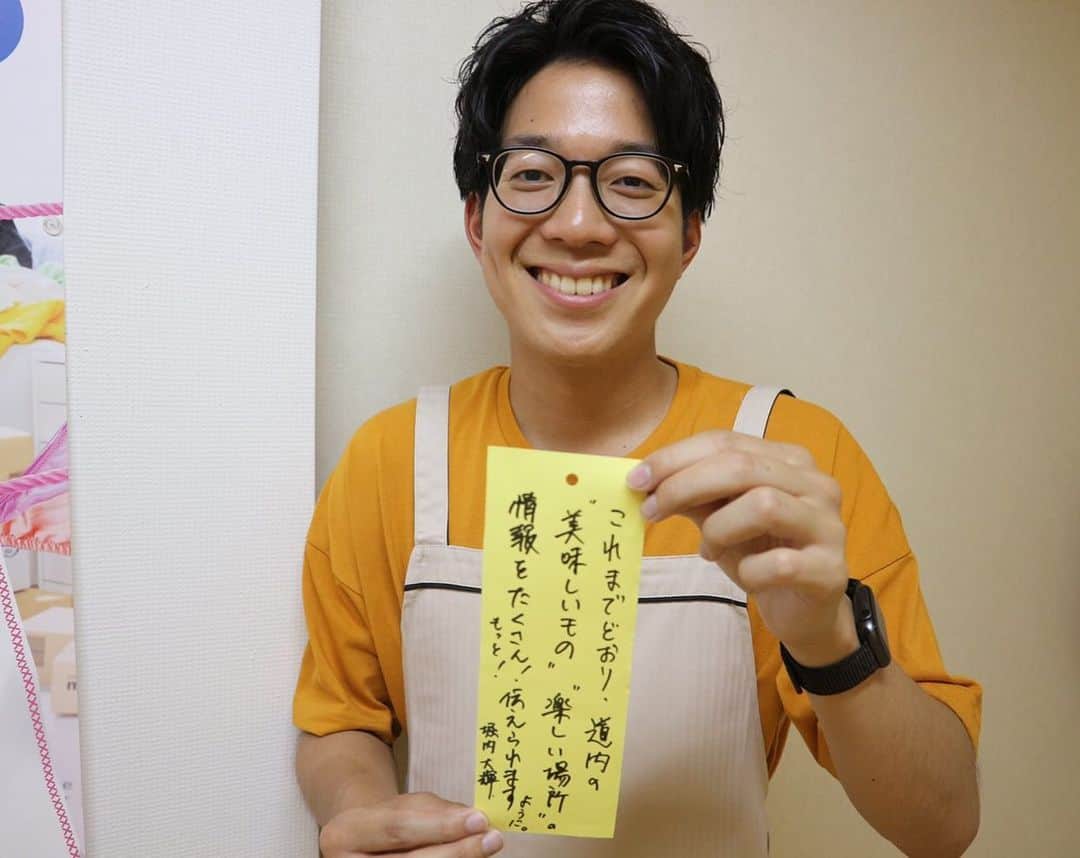 これまでどおり、道内の
"美味しいもの" "楽しい場所"の
情報をたくさん！もっと！伝えられますように。
堀内大輝